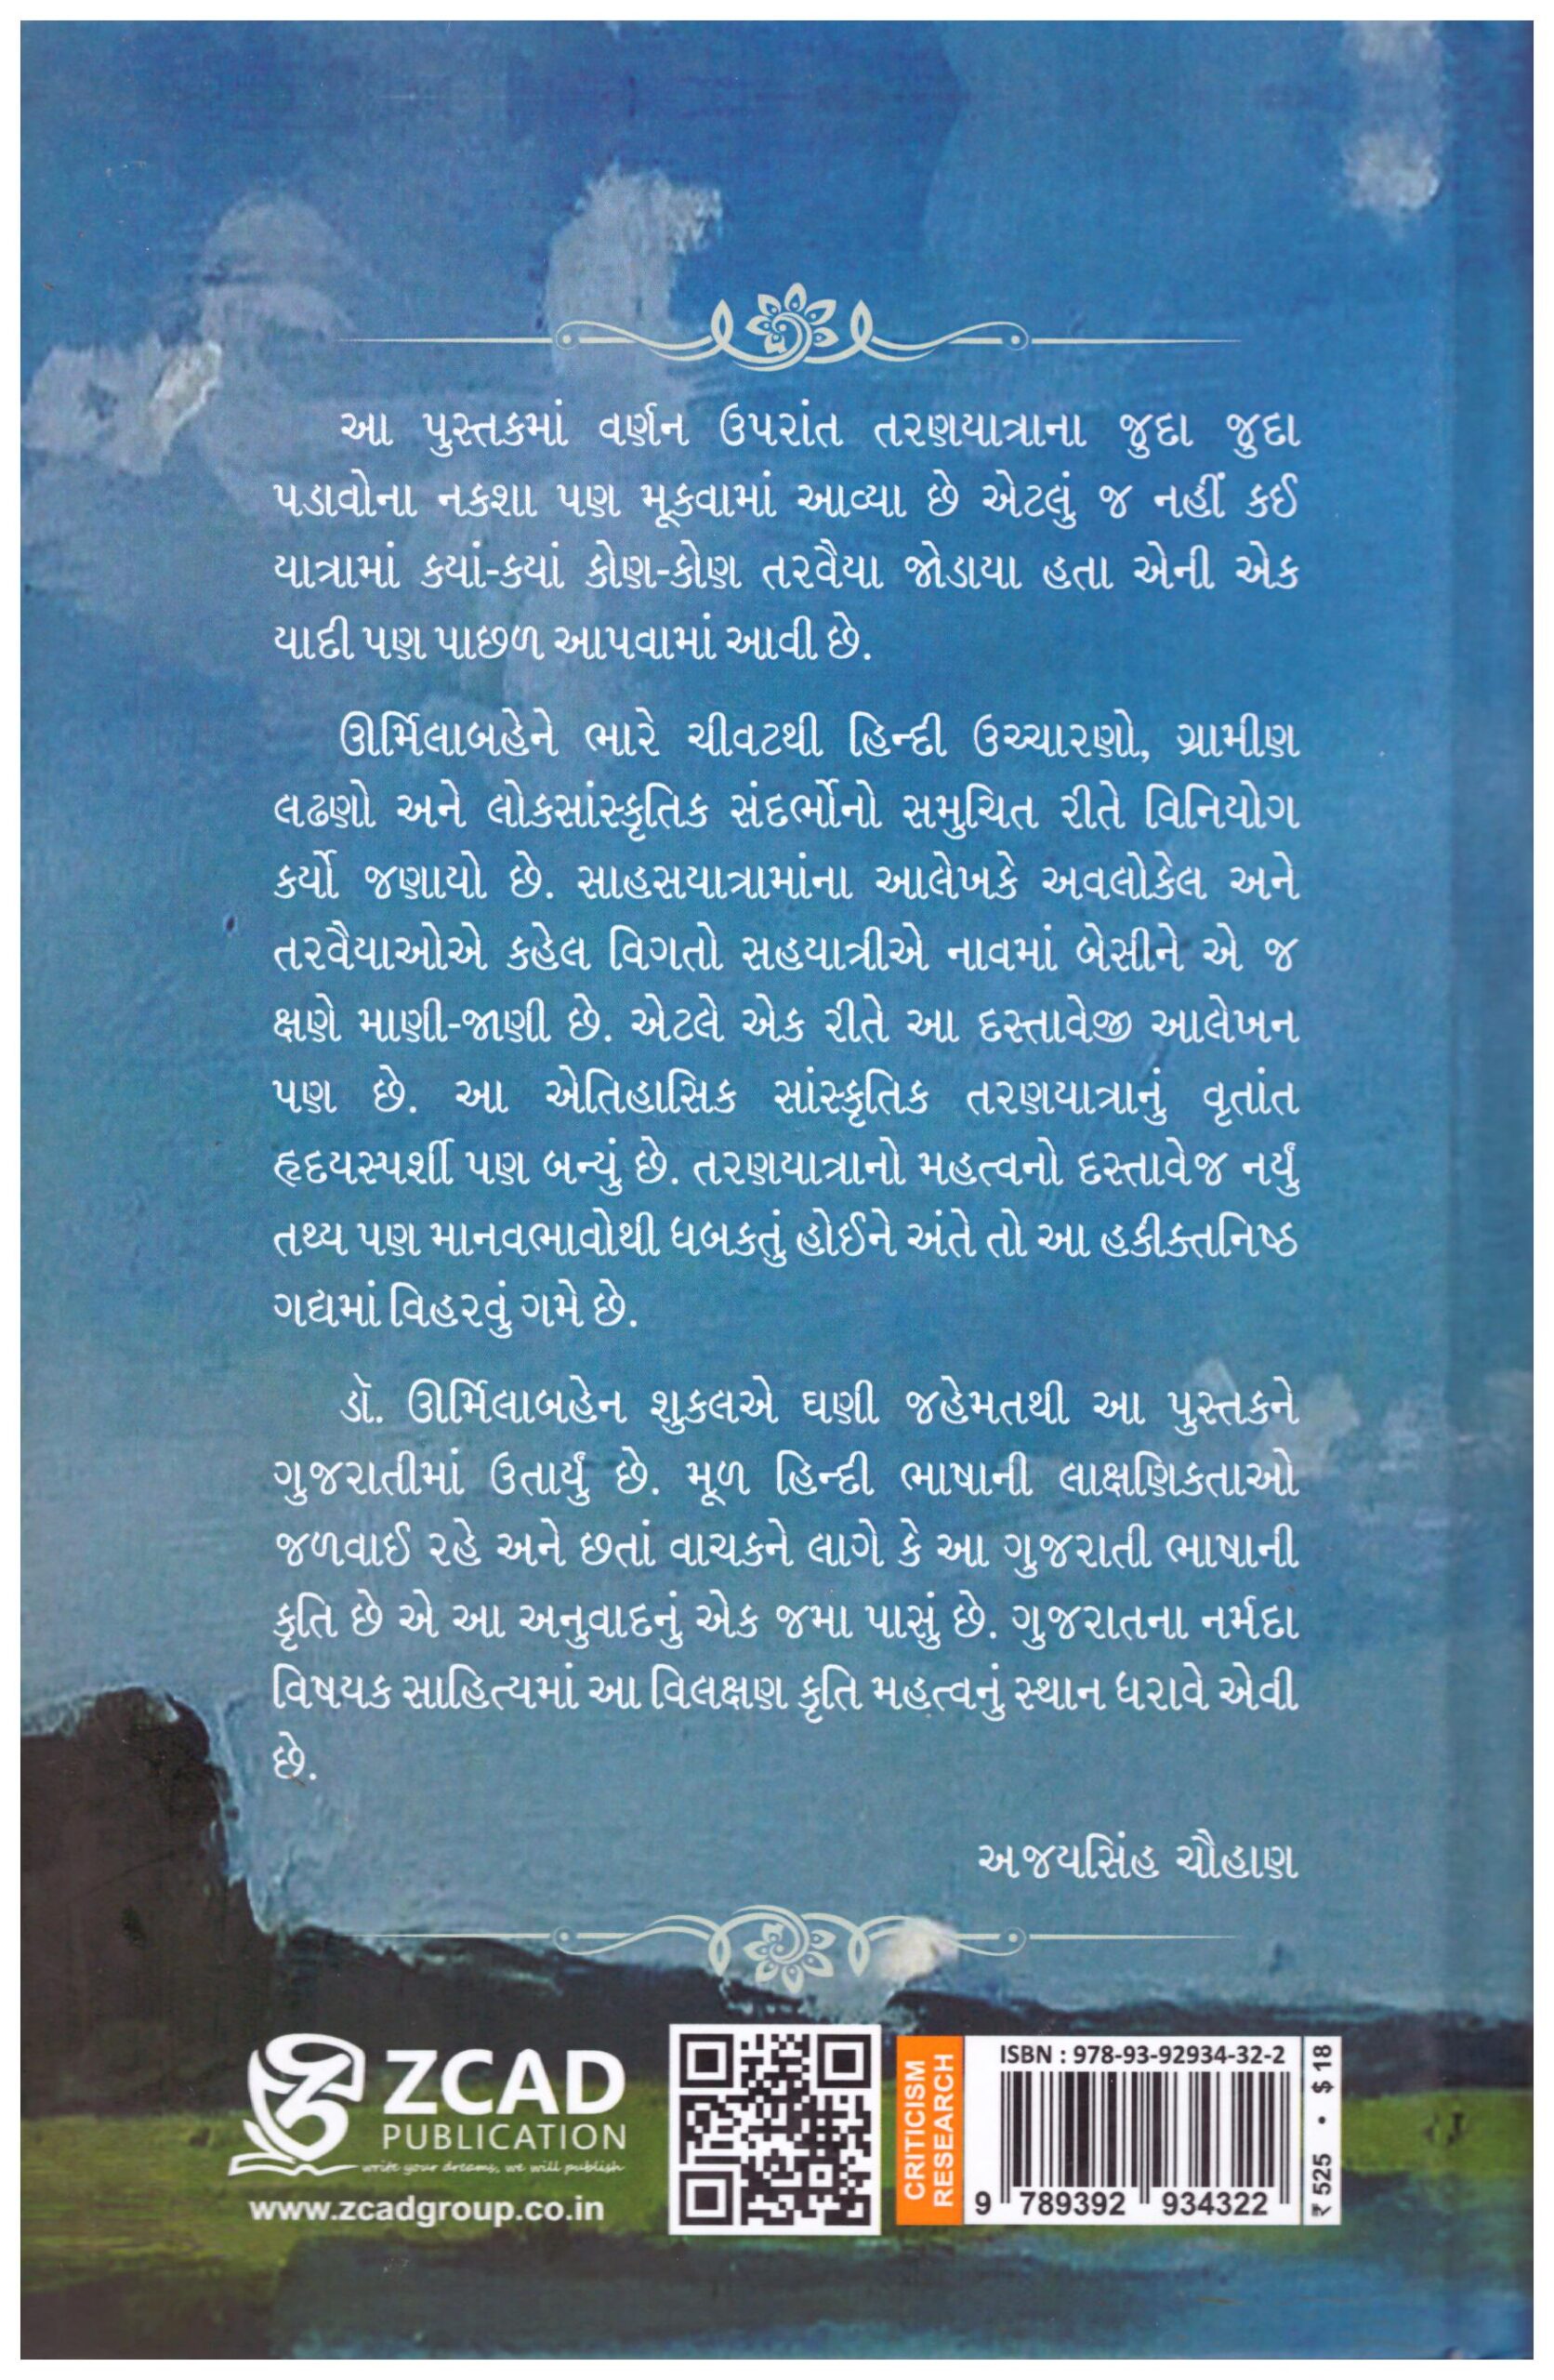 આ પુસ્તકમાં વર્ણન ઉપરાંત તરણયાત્રાના જુદા જુદા
પડાવોના નકશા પણ મૂકવામાં આવ્યા છે એટલું જ નહીં કઈ
યાત્રામાં કયાં-કયાં કોણ-કોણ તરવૈયા જોડાયા હતા એની એક
યાદી પણ પાછળ આપવામાં આવી છે.
ઊર્મિલાબહેને ભારે ચીવટથી હિન્દી ઉચ્ચારણો, ગ્રામીણ
લઢણો અને લોકસાંસ્કૃતિક સંદર્ભોનો સમુચિત રીતે વિનિયોગ
કર્યો જણાયો છે. સાહસયાત્રામાંના આલેખકે અવલોકેલ અને
તરવૈયાઓએ કહેલ વિગતો સહયાત્રીએ નાવમાં બેસીને એ જ
ક્ષણે માણી-જાણી છે. એટલે એક રીતે આ દસ્તાવેજી આલેખન
પણ છે. આ ઐતિહાસિક સાંસ્કૃતિક તરણયાત્રાનું વૃતાંત
હૃદયસ્પર્શી પણ બન્યું છે. તરણયાત્રાનો મહત્વનો દસ્તાવેજ નર્યું
તથ્ય પણ માનવભાવોથી ધબકતું હોઈને અંતે તો આ હકીક્તનિષ્ઠ
ગદ્યમાં વિહરવું ગમે છે.
ડૉ. ઊર્મિલાબહેન શુકલએ ઘણી જહેમતથી આ પુસ્તકને
ગુજરાતીમાં ઉતાર્યું છે. મૂળ હિન્દી ભાષાની લાક્ષણિકતાઓ
જળવાઈ રહે અને છતાં વાચકને લાગે કે આ ગુજરાતી ભાષાની
કૃતિ છે એ આ અનુવાદનું એક જમા પાસું છે. ગુજરાતના નર્મદા
વિષયક સાહિત્યમાં આ વિલક્ષણ કૃતિ મહત્વનું સ્થાન ધરાવે એવી
છે.
અજયસિંહ ચૌહાણ
ZCAD
PUBLICATION
write your dreams, we will publish
www.zcadgroup.co.in
CRITICISM
RESEARCH
ISBN : 978-93-92934-32-2
9 789392 934322
₹ 525 • $ 18